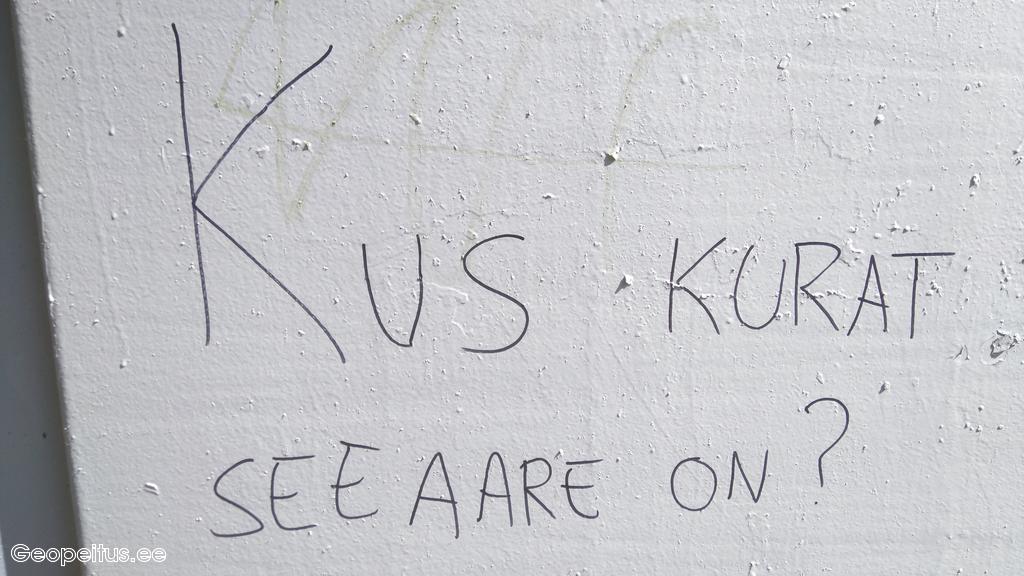 KUS KURAT
SEE AARE ON?
Geopeitus.ee